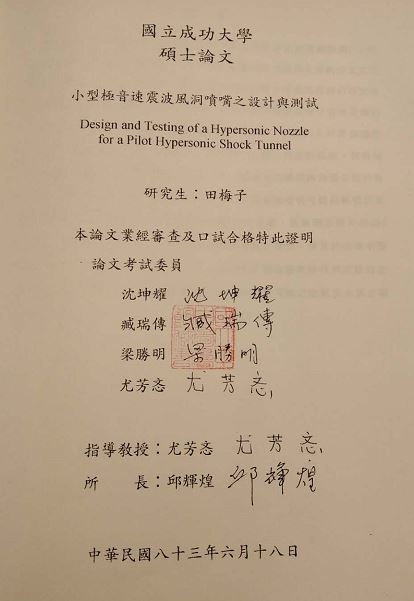 國立成功大學
碩士論文
小型極音速震波風洞噴嘴之設計與測試
Design and Testing of a Hypersonic Nozzle
for a Pilot Hypersonic Shock Tunnel
研究生：田梅子
本論文業經審查及口試合格特此證明
論文考試委員
沈坤耀 沈坤耀
臧瑞傳 臧瑞傳
梁勝明 梁勝明
尤芳忞 尤芳忞
指導教授：尤芳忞 尤芳忞
所　　長：邱輝煌 邱輝煌
中華民國八十三年六月十八日